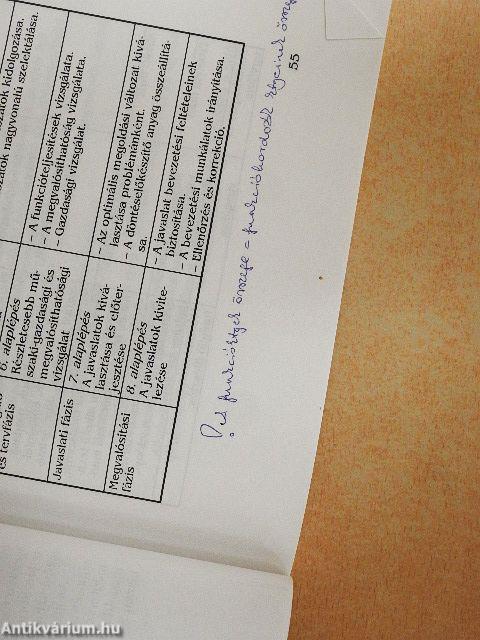 zatok kidolgozása.
zatok nagyvonalú szelektálása.
és tervfázis
6. alaplépés
Részletesebb mű-
szaki-gazdasági és
megvalósíthatósági
vizsgálat
– A funkcióteljesítések vizsgálata.
– A megvalósíthatóság vizsgálata.
– Gazdasági vizsgálat.
Javaslati fázis
7. alaplépés
A javaslatok kivá-
lasztása és előter-
jesztése
– Az optimális megoldási változat kivá-
lasztása problémánként.
– A döntéselőkészítő anyag összeállítá-
sa.
Megvalósítási
fázis
8. alaplépés
A javaslatok kivite-
lezése
– A javaslat bevezetési feltételeinek
biztosítása.
– A bevezetési munkálatok irányítása.
– Ellenőrzés és korrekció.
55
funkcióértékek összege = funkcióhordozók
Antikvárium.hu